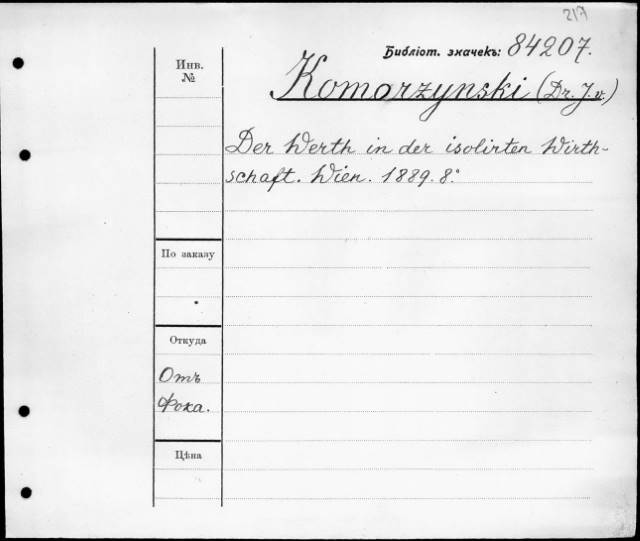 217
Библіот. значекъ: 84207.
Komorzynski (Dr. J. v.)
Инв.
№
Der Werth in der isolirten Wirth-
schaft. Wien. 1889. 8.°
По заказу
Откуда
Отъ
Фока.
Цѣна